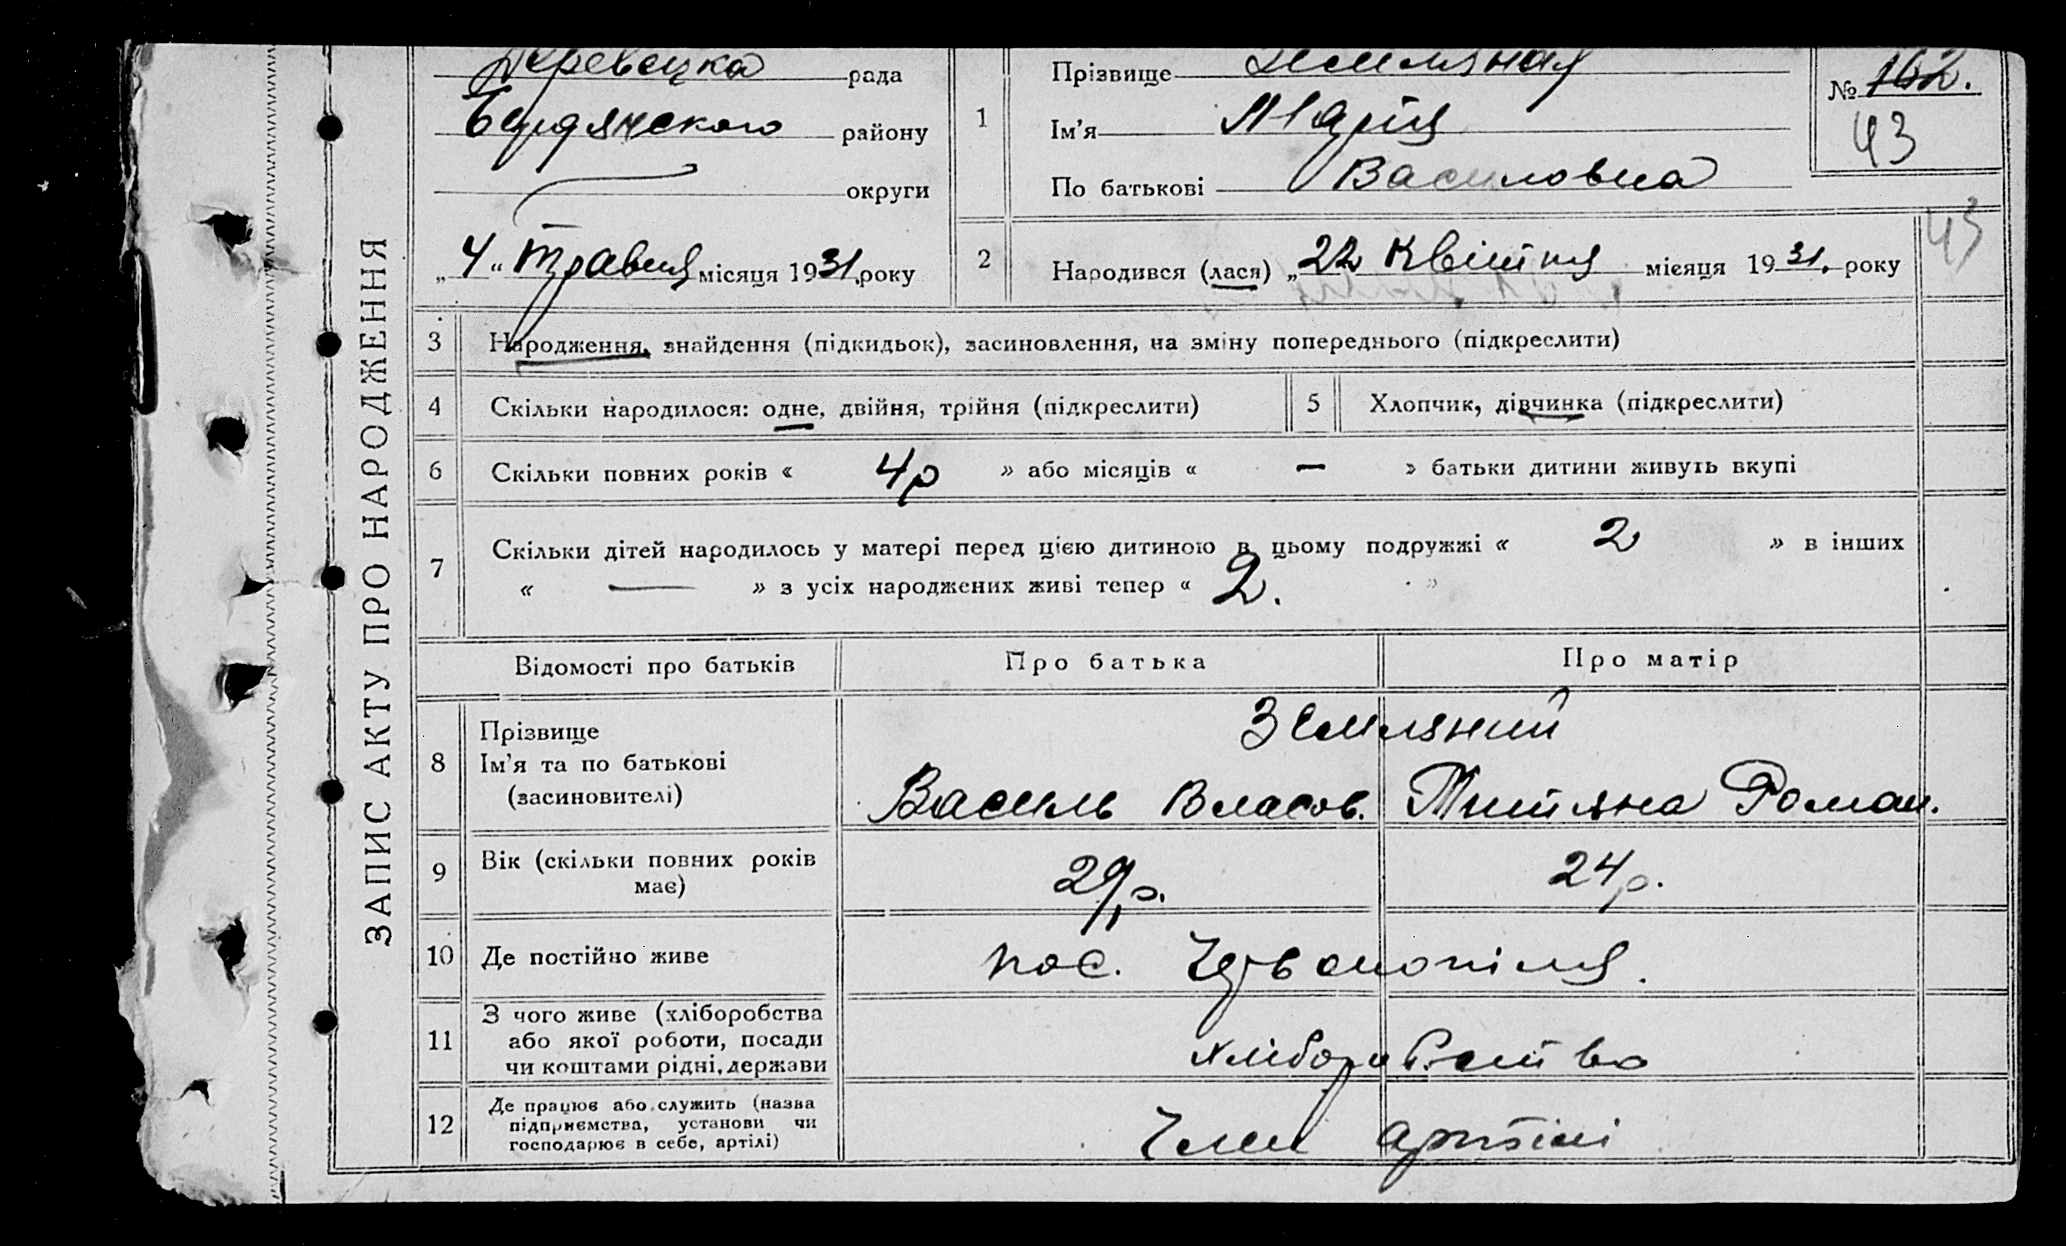 ЗАПИС АКТУ ПРО НАРОДЖЕННЯ
рада
Бердянского району
округи
„ 4 “ травня місяця 1931. року
1
Прізвище Земляная
Ім’я Марія
По батькові Василовна
№ 162.
43
43
2
Народився (лася) „ 22 Квітня місяця 1931. року
3 Народження, знайдення (підкидьок), засиновлення, на зміну попереднього (підкреслити)
4 Скільки народилося: одне, двійня, трійня (підкреслити)
5 Хлопчик, дівчинка (підкреслити)
6 Скільки повних років « 4р » або місяців « — » батьки дитини живуть вкупі
7 Скільки дітей народилось у матері перед цією дитиною в цьому подружжі « 2 » в інших
« — » з усіх народжених живі тепер « 2. »
Відомості про батьків Про батька Про матір
8 Прізвище
Ім’я та по батькові
(засиновителі)
Земляний
Василь Власов. Титяна Роман.
9 Вік (скільки повних років
має)
29 р. 24 р.
10 Де постійно живе
пос. Червонопілля.
11 З чого живе (хліборобства
або якої роботи, посади
чи коштами рідні, держави
хліборобство
12 Де працює або служить (назва
підприємства, установи чи
господарює в себе, артілі)
Член артілі